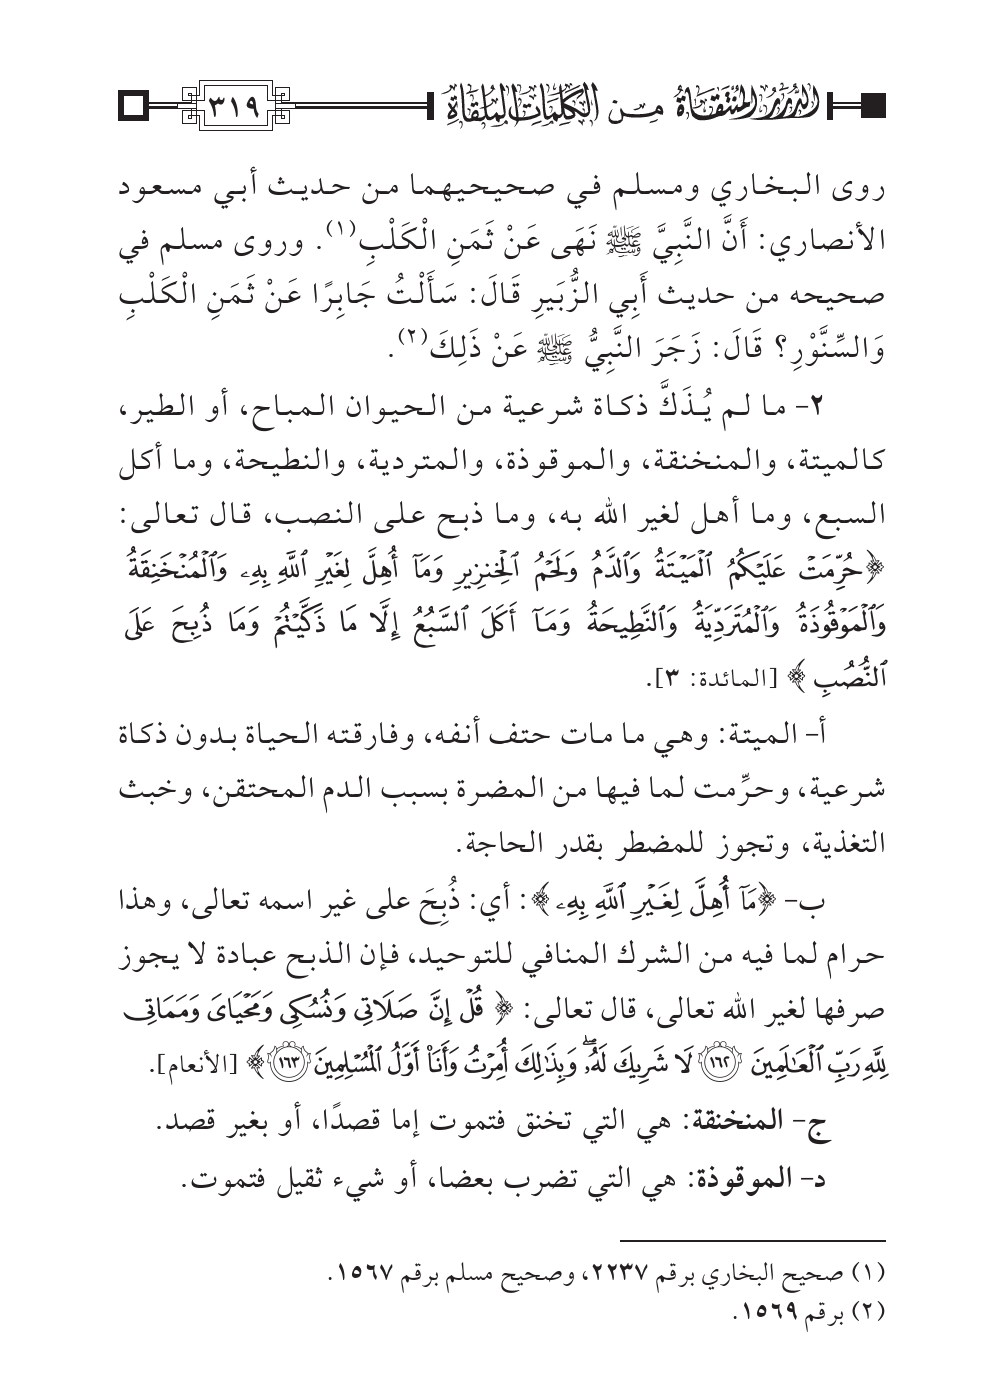 الدرر المنتقاة من الكلمات الملقاة ٣١٩
روى البخاري ومسلم في صحيحيهما من حديث أبي مسعود
الأنصاري: أَنَّ النَّبِيَّ ﷺ نَهَى عَنْ ثَمَنِ الْكَلْبِ(١). وروى مسلم في
صحيحه من حديث أَبِي الزُّبَيرِ قَالَ: سَأَلْتُ جَابِرًا عَنْ ثَمَنِ الْكَلْبِ
وَالسِّنَّوْرِ؟ قَالَ: زَجَرَ النَّبِيُّ ﷺ عَنْ ذَلِكَ(٢).
٢- ما لم يُذَكَّ ذكاة شرعية من الحيوان المباح، أو الطير،
كالميتة، والمنخنقة، والموقوذة، والمتردية، والنطيحة، وما أكل
السبع، وما أهل لغير الله به، وما ذبح على النصب، قال تعالى:
﴿حُرِّمَتْ عَلَيْكُمُ ٱلْمَيْتَةُ وَٱلدَّمُ وَلَحْمُ ٱلْخِنزِيرِ وَمَآ أُهِلَّ لِغَيْرِ ٱللَّهِ بِهِۦ وَٱلْمُنْخَنِقَةُ
وَٱلْمَوْقُوذَةُ وَٱلْمُتَرَدِّيَةُ وَٱلنَّطِيحَةُ وَمَآ أَكَلَ ٱلسَّبُعُ إِلَّا مَا ذَكَّيْتُمْ وَمَا ذُبِحَ عَلَى
ٱلنُّصُبِ﴾ [المائدة: ٣].
أ- الميتة: وهي ما مات حتف أنفه، وفارقته الحياة بدون ذكاة
شرعية، وحرِّمت لما فيها من المضرة بسبب الدم المحتقن، وخبث
التغذية، وتجوز للمضطر بقدر الحاجة.
ب- ﴿مَآ أُهِلَّ لِغَيْرِ ٱللَّهِ بِهِۦ﴾: أي: ذُبِحَ على غير اسمه تعالى، وهذا
حرام لما فيه من الشرك المنافي للتوحيد، فإن الذبح عبادة لا يجوز
صرفها لغير الله تعالى، قال تعالى: ﴿قُلْ إِنَّ صَلَاتِى وَنُسُكِى وَمَحْيَاىَ وَمَمَاتِى
لِلَّهِ رَبِّ ٱلْعَٰلَمِينَ ١٦٢ لَا شَرِيكَ لَهُۥۖ وَبِذَٰلِكَ أُمِرْتُ وَأَنَا۠ أَوَّلُ ٱلْمُسْلِمِينَ ١٦٣﴾ [الأنعام].
ج- المنخنقة: هي التي تخنق فتموت إما قصدًا، أو بغير قصد.
د- الموقوذة: هي التي تضرب بعضا، أو شيء ثقيل فتموت.
(١) صحيح البخاري برقم ٢٢٣٧، وصحيح مسلم برقم ١٥٦٧.
(٢) برقم ١٥٦٩.